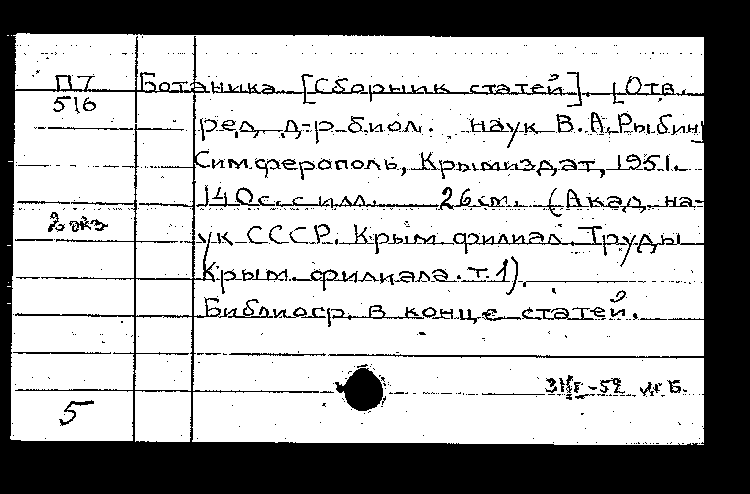 П7
516
Ботаника [Сборник статей]. [Отв.
ред. д-р биол. наук В.А.Рыбин]
Симферополь, Крымиздат, 1951.
140с. с илл. 26см. (Акад. на-
2 экз
ук СССР. Крым. филиал. Труды
Крым. филиала. т.1).
Библиогр. в конце статей.
5